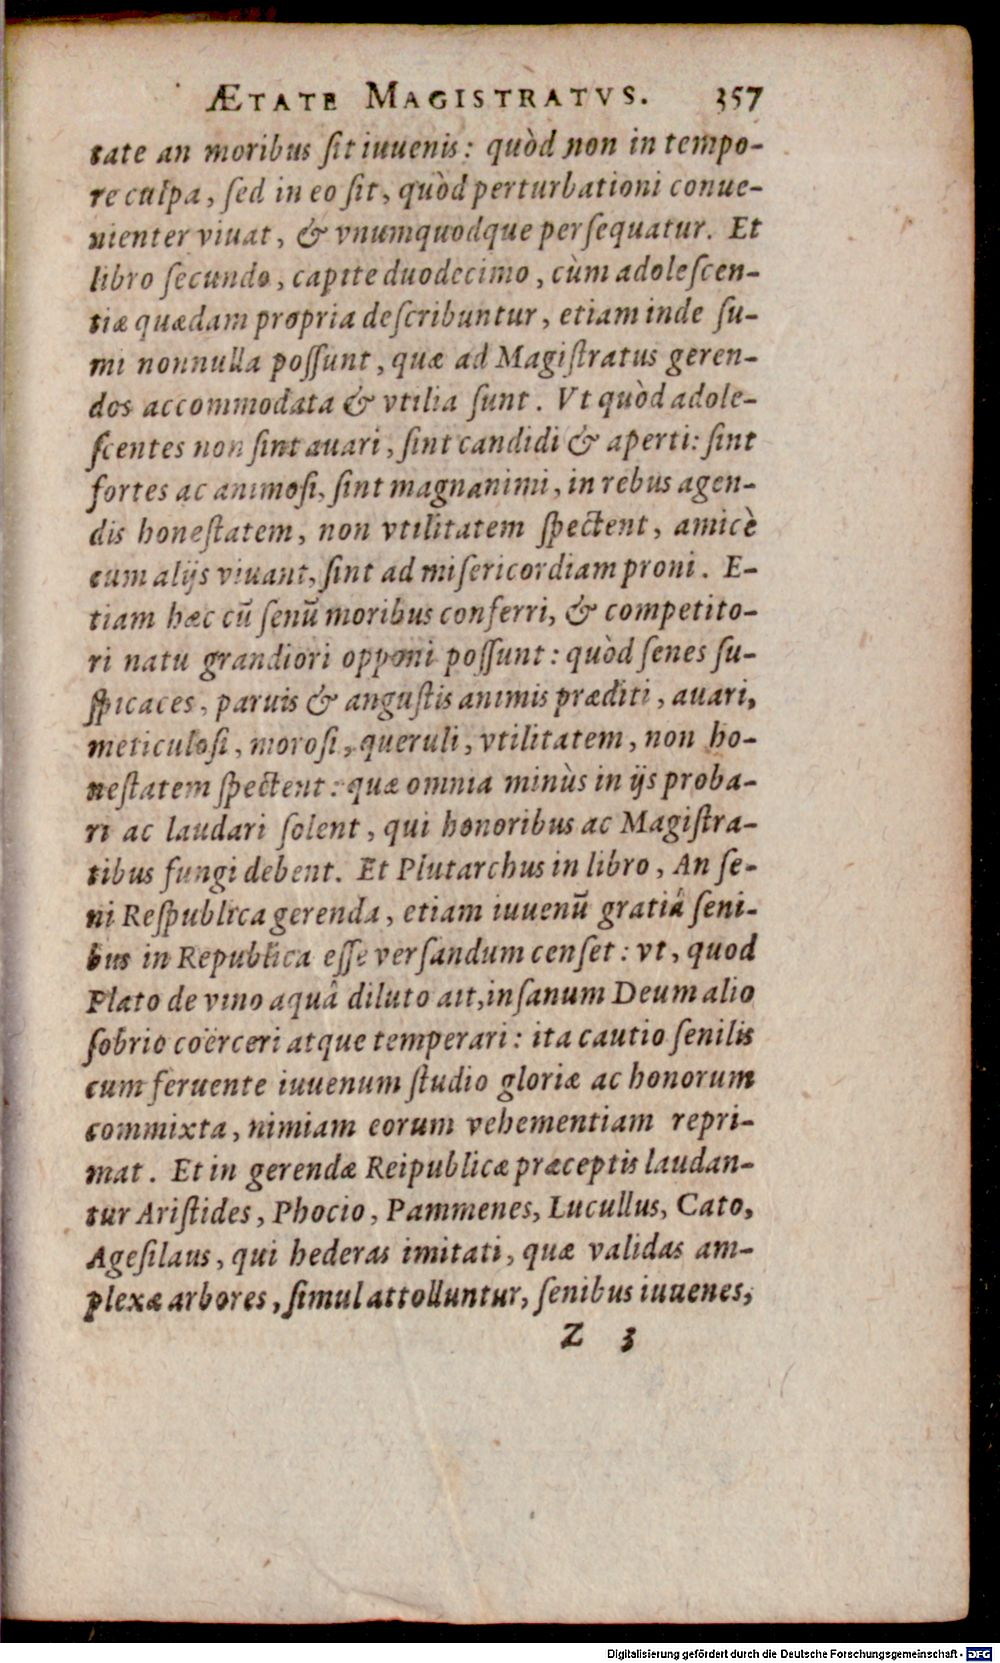 ÆTATE MAGISTRATVS. 357
tate an moribus ſit iuuenis: quòd non in tempo-
re culpa, ſed in eo ſit, quòd perturbationi conue-
nienter viuat, & vnumquodque perſequatur. Et
libro ſecundo, capite duodecimo, cùm adoleſcen-
tiæ quædam propria deſcribuntur, etiam inde ſu-
mi nonnulla poſſunt, quæ ad Magiſtratus geren-
dos accommodata & vtilia ſunt. Vt quòd adole-
ſcentes non ſint auari, ſint candidi & aperti: ſint
fortes ac animoſi, ſint magnanimi, in rebus agen-
dis honeſtatem, non vtilitatem ſpectent, amicè
cum alijs viuant, ſint ad miſericordiam proni. E-
tiam hæc cū ſenū moribus conferri, & competito-
ri natu grandiori opponi poſſunt: quòd ſenes ſu-
ſpicaces, paruis & anguſtis animis præditi, auari,
meticuloſi, moroſi, queruli, vtilitatem, non ho-
neſtatem ſpectent: quæ omnia minùs in ijs proba-
ri ac laudari ſolent, qui honoribus ac Magiſtra-
tibus fungi debent. Et Plutarchus in libro, An ſe-
ni Reſpublica gerenda, etiam iuuenū gratiâ ſeni-
bus in Republica eſſe verſandum cenſet: vt, quod
Plato de vino aquâ diluto ait, inſanum Deum alio
ſobrio coërceri atque temperari: ita cautio ſenilis
cum feruente iuuenum ſtudio gloriæ ac honorum
commixta, nimiam eorum vehementiam repri-
mat. Et in gerendæ Reipublicæ præceptis laudan-
tur Ariſtides, Phocio, Pammenes, Lucullus, Cato,
Ageſilaus, qui hederas imitati, quæ validas am-
plexæ arbores, ſimul attolluntur, ſenibus iuuenes,
Z 3
Digitalisierung gefördert durch die Deutsche Forschungsgemeinschaft - DFG